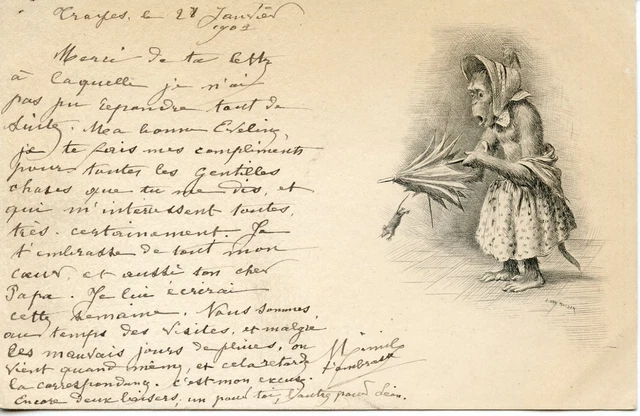 Troyes, le 28 Janvier
1902
Merci de ta lettre
à laquelle je n'ai
pas pu répondre tout de
suite. Ma bonne Eveline,
je te fais mes compliments
pour toutes les gentilles
choses que tu me dis, et
qui m'interessent toutes,
très certainement. Je
t'embrasse de tout mon
cœur, et aussi ton cher
Papa. Je lui écrirai
cette semaine. Nous sommes
au temps des visites, et malgré
les mauvais jours de pluies, on
vient quand même, et cela retarde
la correspondance. C'est mon excuse.
Encore deux baisers, un pour toi, l'autre pour Léon.
t'embrasse